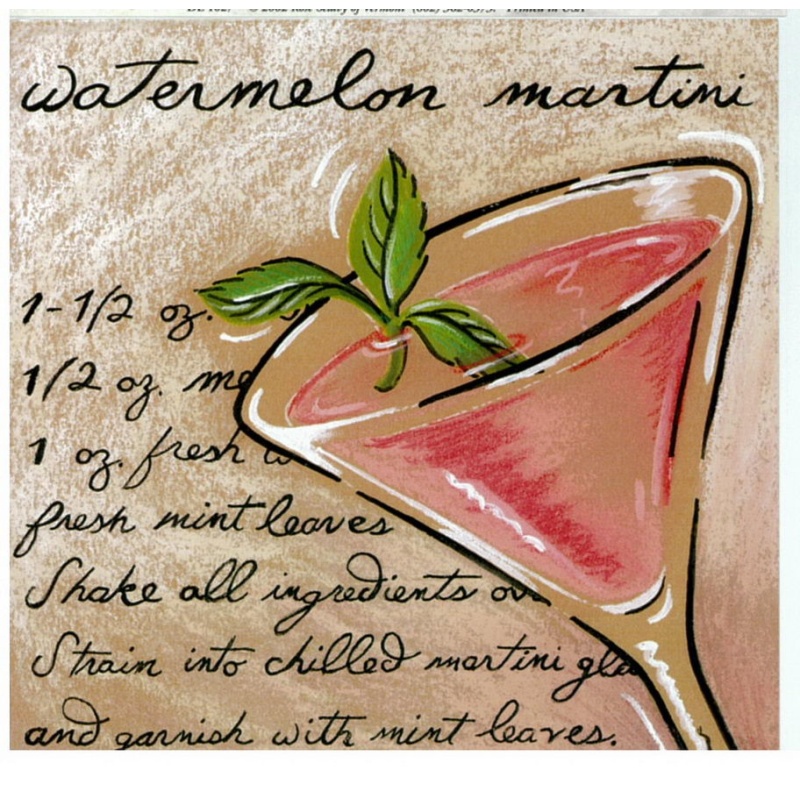 watermelon martini
1-1/2 oz.
1/2 oz. me
1 oz. fresh
fresh mint leaves
Shake all ingredients ov
Strain into chilled martini gla
and garnish with mint leaves.